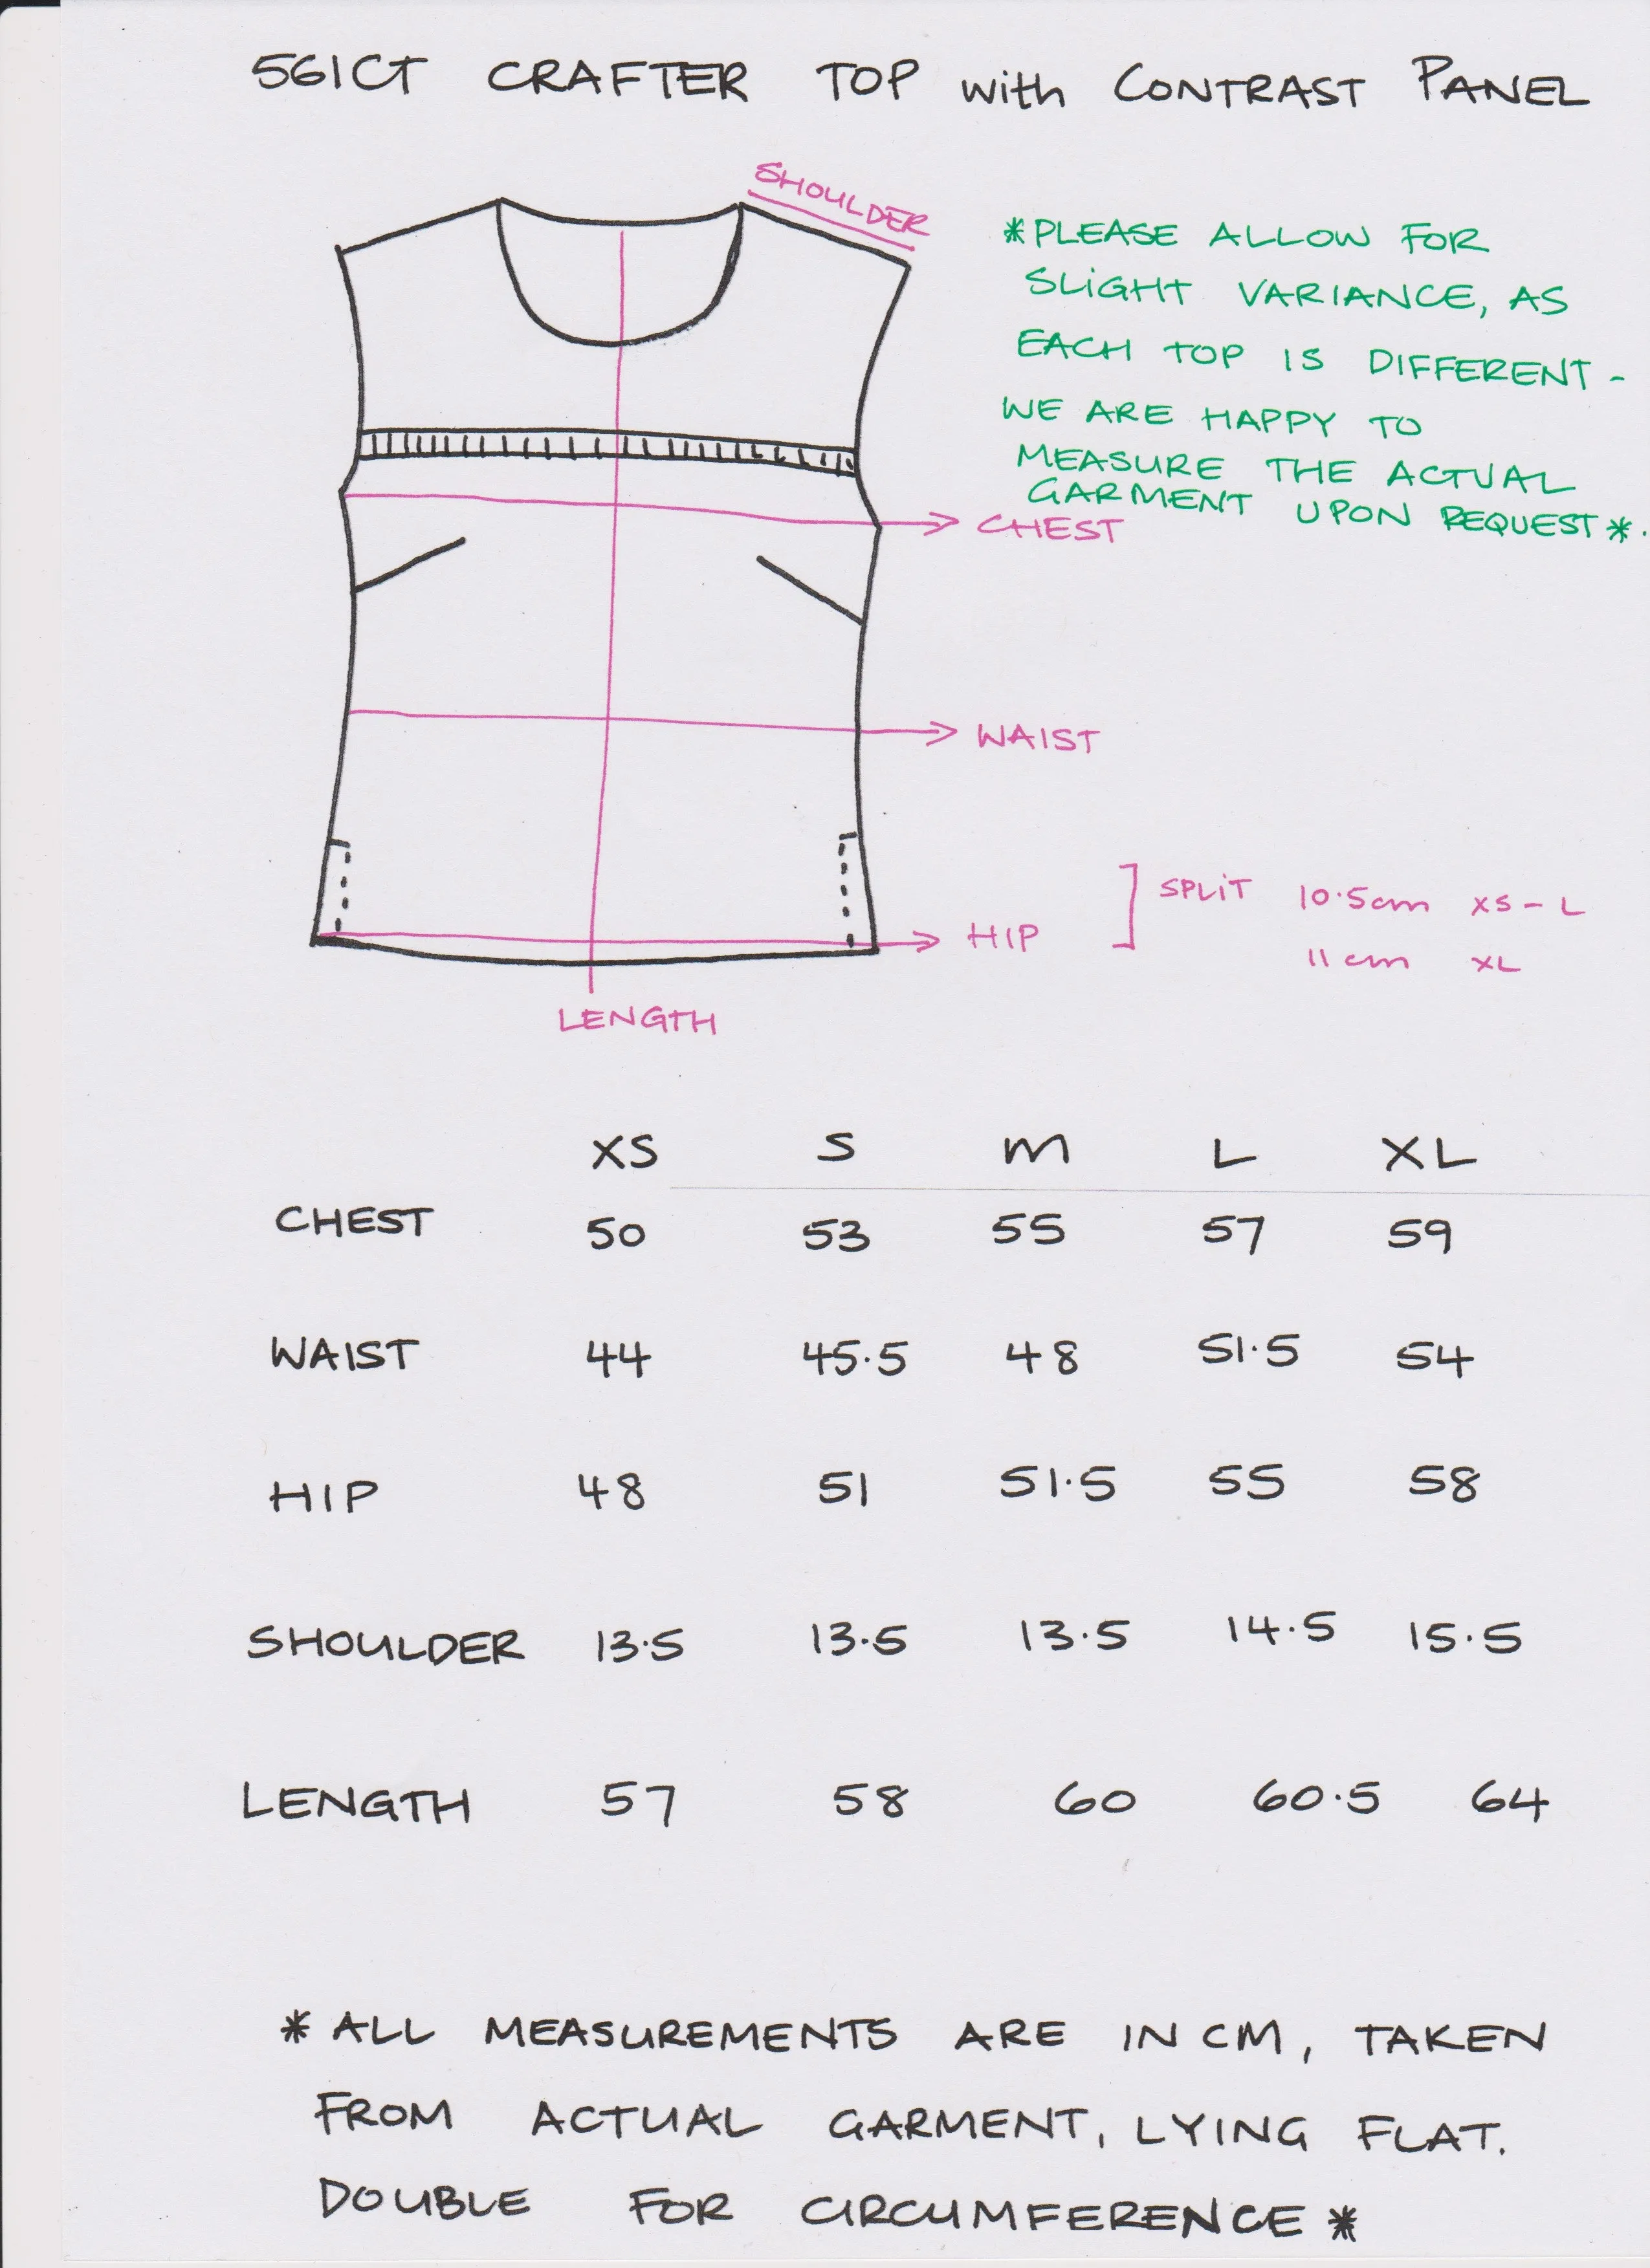 561CT CRAFTER TOP with CONTRAST PANEL
SHOULDER
*PLEASE ALLOW FOR
SLiGHT VARIANCE, AS
EACH TOP IS DIFFERENT -
WE ARE HAPPY TO
MEASURE THE ACTUAL
GARMENT UPON REQUEST *.
CHEST
WAIST
SPLiT 10.5cm XS - L
HIP
11 cm XL
LENGTH
XS S M L XL
CHEST 50 53 55 57 59
WAIST 44 45.5 48 51.5 54
HIP 48 51 51.5 55 58
SHOULDER 13.5 13.5 13.5 14.5 15.5
LENGTH 57 58 60 60.5 64
* ALL MEASUREMENTS ARE IN CM, TAKEN
FROM ACTUAL GARMENT, LYING FLAT.
DOUBLE FOR CIRCUMFERENCE *